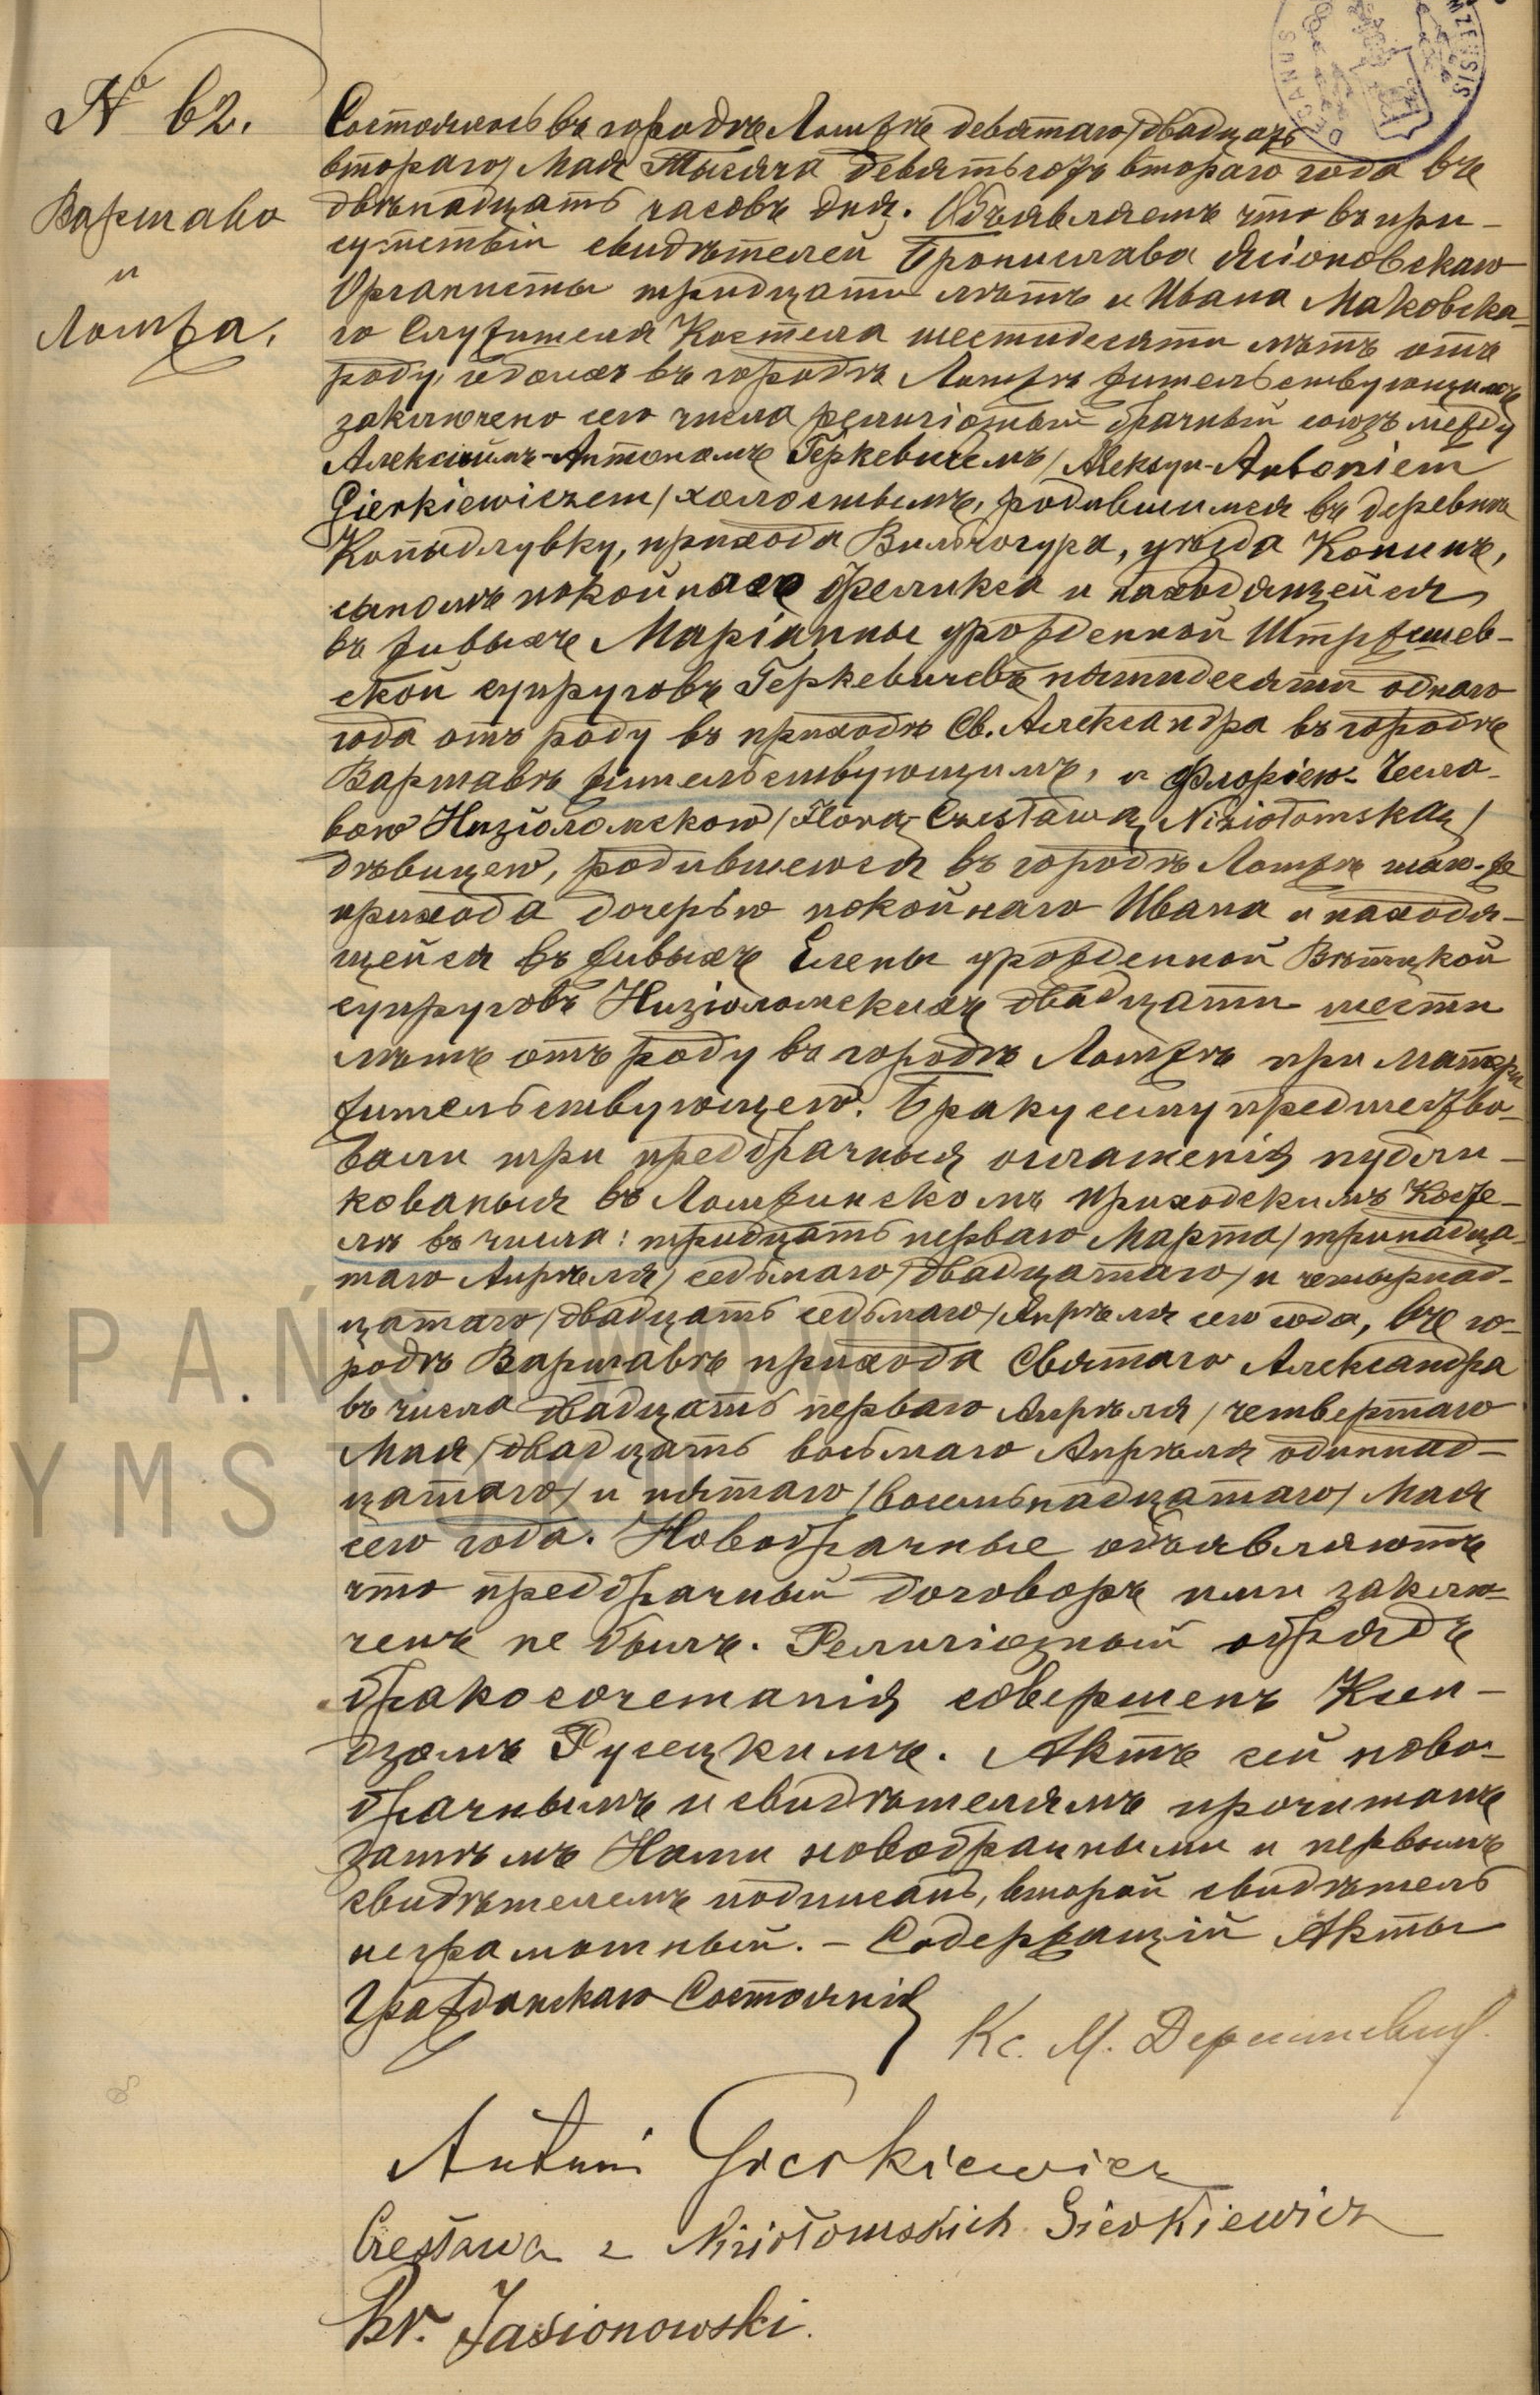 № 62.
Варшава
и
Ломжа.
Состоялось въ городѣ Ломжѣ девятаго /двадцать
втораго/ Мая тысяча девятьсотъ втораго года въ
двѣнадцать часовъ дня. Объявляемъ что въ при-
сутствіи свидѣтелей Бронислава Ясіоновскаго
Органисты тридцати лѣтъ и Ивана Маковска-
го Служителя Костела шестидесяти лѣтъ отъ
роду, обоихъ въ городѣ Ломжѣ жительствующихъ
заключено сего числа религіозный брачный союзъ между
Алексѣемъ-Антономъ Геркевичемъ /Aleksym-Antoniem
Gierkiewiczem/ холостымъ, родившимся въ деревнѣ
Копыдлувку, прихода Вильчогура, уѣзда Конинъ,
сыномъ покойнаго Феликса и находящейся
въ живыхъ Маріанны урожденной Штржешев-
ской супруговъ Геркевичевъ пятидесяти одного
года отъ роду въ приходѣ Св. Александра въ городѣ
Варшавѣ жительствующимъ, и Флоріею-Чесла-
вою Низіоломскою /Florą-Czesławą Niziołomską/
дѣвицею, родившеюся въ городѣ Ломжѣ того-же
прихода дочерью покойнаго Ивана и находя-
щейся въ живыхъ Елены урожденной Вѣтцкой
супруговъ Низіоломскихъ двадцати шести
лѣтъ отъ роду въ городѣ Ломжѣ при матери
жительствующею. Браку сему предшество-
вали три предбрачныя оглашенія публи-
кованыя въ Ломжинскомъ приходскимъ Косте-
лѣ въ числа: тридцать перваго Марта /тринадца-
таго Апрѣля/ седьмаго /двадцатаго/ и четырнад-
цатаго /двадцать седьмаго/ Апрѣля сего года, въ го-
родѣ Варшавѣ прихода Святаго Александра
въ числа двадцать перваго Апрѣля /четвертаго
Мая/ двадцать восьмаго Апрѣля /одиннад-
цатаго/ и пятаго /восемьнадцатаго/ Мая
сего года. Новобрачные объявляютъ
что предбрачный договоръ ими заклю-
ченъ не былъ. Религіозный обрядъ
бракосочетанія совершенъ Ксен-
дзомъ Русецкимъ. Актъ сей ново-
брачнымъ и свидѣтелямъ прочитанъ
затѣмъ Нами новобрачными и первымъ
свидѣтелемъ подписанъ, второй свидѣтель
неграмотный. – Содержащій Акты
Гражданскаго Состоянія
Кс. М.
Antoni Gierkiewicz
Czesława z Niziołomskich Gierkiewicz
Br. Jasionowski.
PAŃSTWOWE
YMSTOKU